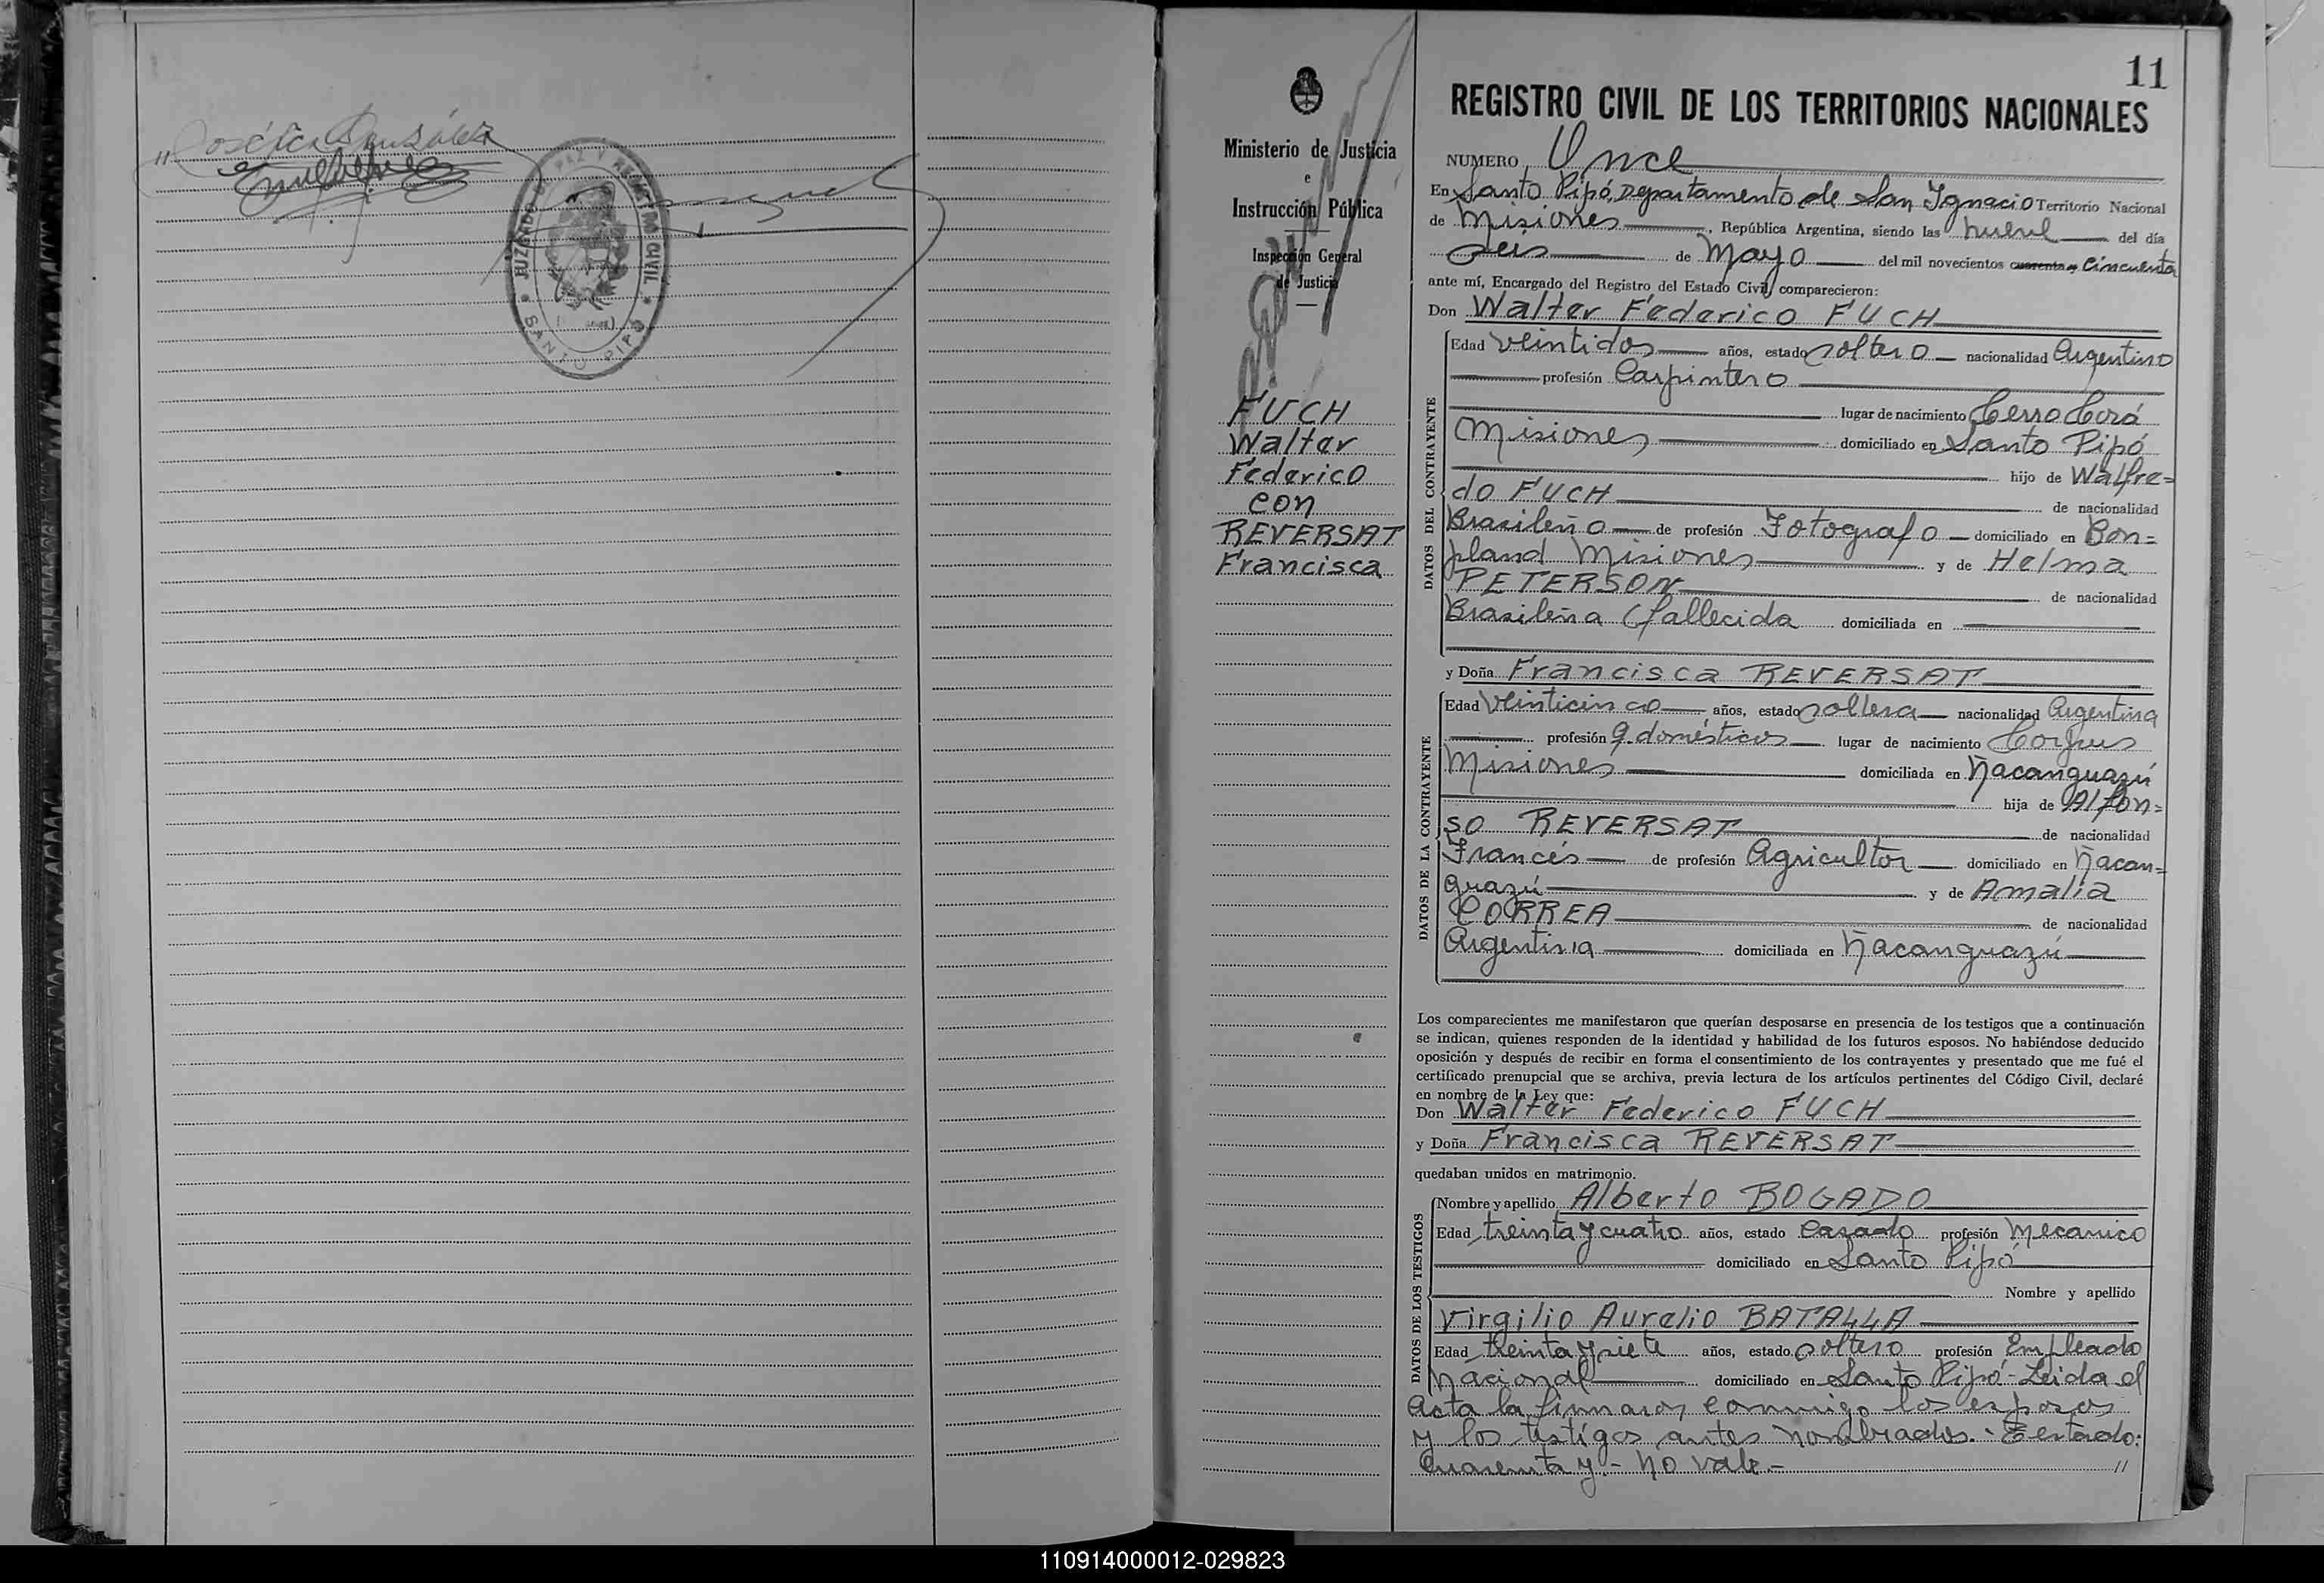 "
González
JUZGADO DE PAZ Y REGISTRO CIVIL
SANTO PIPÓ
11
Ministerio de Justicia
e
Instrucción Pública
Inspección General
de Justicia
FUCH
Walter
Federico
con
REVERSAT
Francisca
REGISTRO CIVIL DE LOS TERRITORIOS NACIONALES
NUMERO Once
En Santo Pipó, Departamento de San Ignacio Territorio Nacional
de Misiones, República Argentina, siendo las nueve del día
seis de Mayo del mil novecientos cuarenta y Cincuenta
ante mí, Encargado del Registro del Estado Civil, comparecieron:
Don Walter Federico FUCH
DATOS DEL CONTRAYENTE
Edad veintidos años, estado soltero nacionalidad Argentino
profesión Carpintero
lugar de nacimiento Cerro Corá
Misiones domiciliado en Santo Pipó
hijo de Walfre=
do FUCH de nacionalidad
Brasileño de profesión Fotografo domiciliado en Bon=
pland Misiones y de Helma
PETERSON de nacionalidad
Brasileña (fallecida domiciliada en
y Doña Francisca REVERSAT
DATOS DE LA CONTRAYENTE
Edad veinticinco años, estado soltera nacionalidad Argentina
profesión q. domésticos lugar de nacimiento Corpus
Misiones domiciliada en Ñacanguazú
hija de Alfon=
so REVERSAT de nacionalidad
Francés de profesión Agricultor domiciliado en Ñacan=
guazú y de Amalia
CORREA de nacionalidad
Argentina domiciliada en Ñacanguazú
Los comparecientes me manifestaron que querían desposarse en presencia de los testigos que a continuación
se indican, quienes responden de la identidad y habilidad de los futuros esposos. No habiéndose deducido
oposición y después de recibir en forma el consentimiento de los contrayentes y presentado que me fué el
certificado prenupcial que se archiva, previa lectura de los artículos pertinentes del Código Civil, declaré
en nombre de la Ley que:
Don Walter Federico FUCH
y Doña Francisca REVERSAT
quedaban unidos en matrimonio.
DATOS DE LOS TESTIGOS
Nombre y apellido Alberto BOGADO
Edad treinta y cuatro años, estado casado profesión Mecanico
domiciliado en Santo Pipó
Nombre y apellido
Virgilio Aurelio BATALLA
Edad treinta y siete años, estado soltero profesión Empleado
Nacional domiciliado en Santo Pipó - Leida el
Acta la firmaron conmigo los esposos
y los testigos antes nombrados.- Testado:
Cuarenta y.- no vale.- "
110914000012-029823